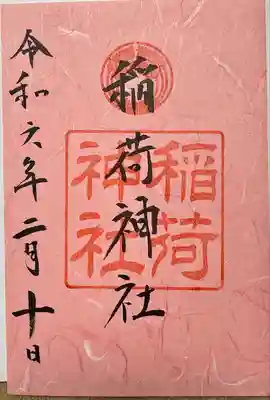 稲荷神社
稲荷神社
令和六年二月十日